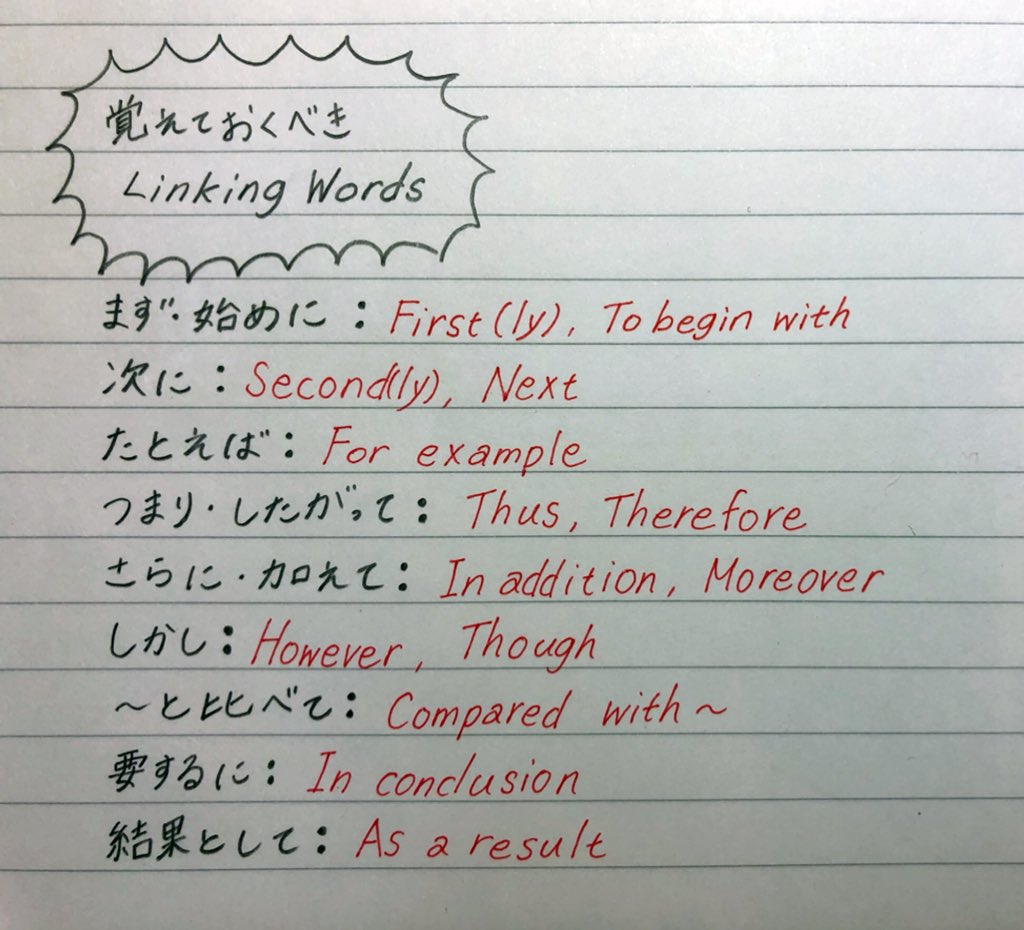 覚えておくべき
Linking Words
まず・始めに：First(ly), To begin with
次に：Second(ly), Next
たとえば：For example
つまり・したがって：Thus, Therefore
さらに・加えて：In addition, Moreover
しかし：However, Though
～と比べて：Compared with～
要するに：In conclusion
結果として：As a result